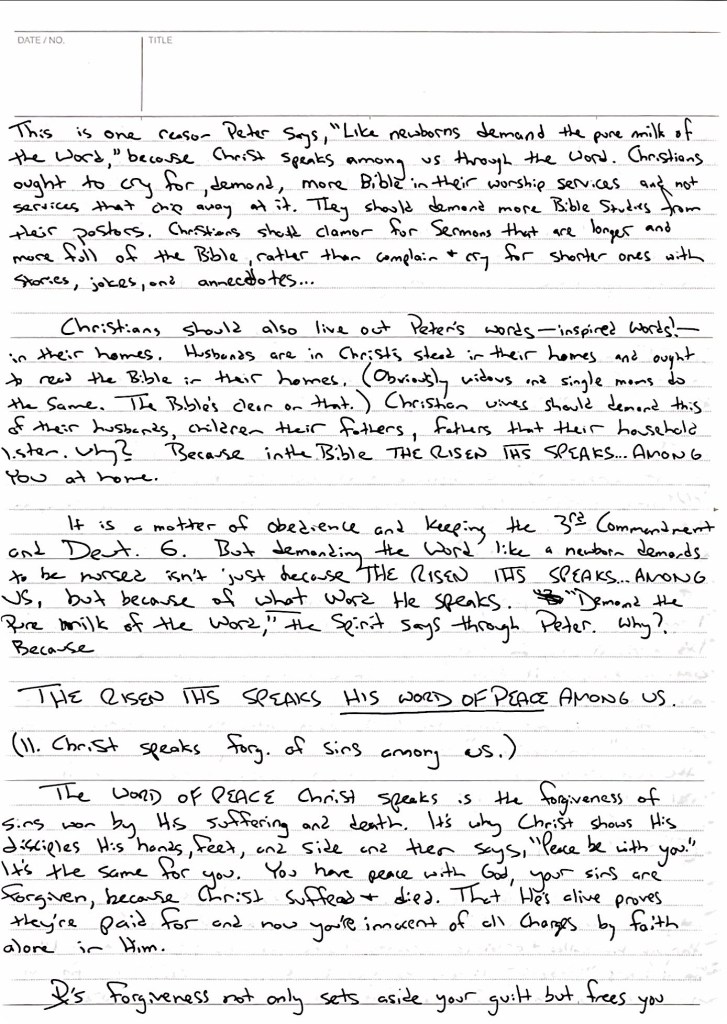 DATE / NO.
TITLE
This is one reason Peter says, "Like newborns demand the pure milk of
the Word," because Christ speaks among us through the Word. Christians
ought to cry for, demand, more Bible in their worship services and not
services that chip away at it. They should demand more Bible Studies from
their pastors. Christians should clamor for Sermons that are longer and
more full of the Bible, rather than complain + cry for shorter ones with
stories, jokes, and annecdotes...
Christians should also live out Peter's words—inspired words!—
in their homes. Husbands are in Christ's stead in their homes and ought
to read the Bible in their homes. (Obviously widows and single moms do
the same. The Bible's clear on that.) Christian wives should demand this
of their husbands, children their fathers, fathers that their household
listen. Why? Because in the Bible THE RISEN IHS SPEAKS... AMONG
YOU at home.
It is a matter of obedience and keeping the 3rd Commandment
and Deut. 6. But demanding the Word like a newborn demands
to be nursed isn't just because THE RISEN IHS SPEAKS... AMONG
US, but because of what Word He speaks. "Demand the
pure milk of the Word," the Spirit says through Peter. Why?
Because
THE RISEN IHS SPEAKS HIS WORD OF PEACE AMONG US.
(II. Christ speaks forg. of sins among us.)
The WORD OF PEACE Christ speaks is the forgiveness of
sins won by His suffering and death. It's why Christ shows His
disciples His hands, feet, and side and then says, "Peace be with you."
It's the same for you. You have peace with God, your sins are
forgiven, because Christ suffead + died. That He's alive proves
they're paid for and now you're innocent of all charges by faith
alone in Him.
's forgiveness not only sets aside your guilt but frees you